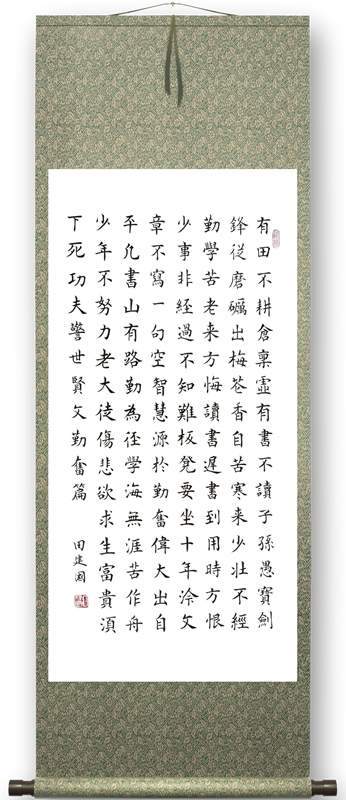 有田不耕倉稟虛有書不讀子孫愚寶劍
鋒從磨礪出梅花香自苦寒来少壮不經
勤學苦老来方悔讀書遲書到用時方恨
少事非經過不知難板凳要坐十年冷文
章不寫一句空智慧源於勤奮偉大出自
平凡書山有路勤為径學海無涯苦作舟
少年不努力老大徒傷悲欲求生富貴須
下死功夫警世賢文勤奮篇
田建國